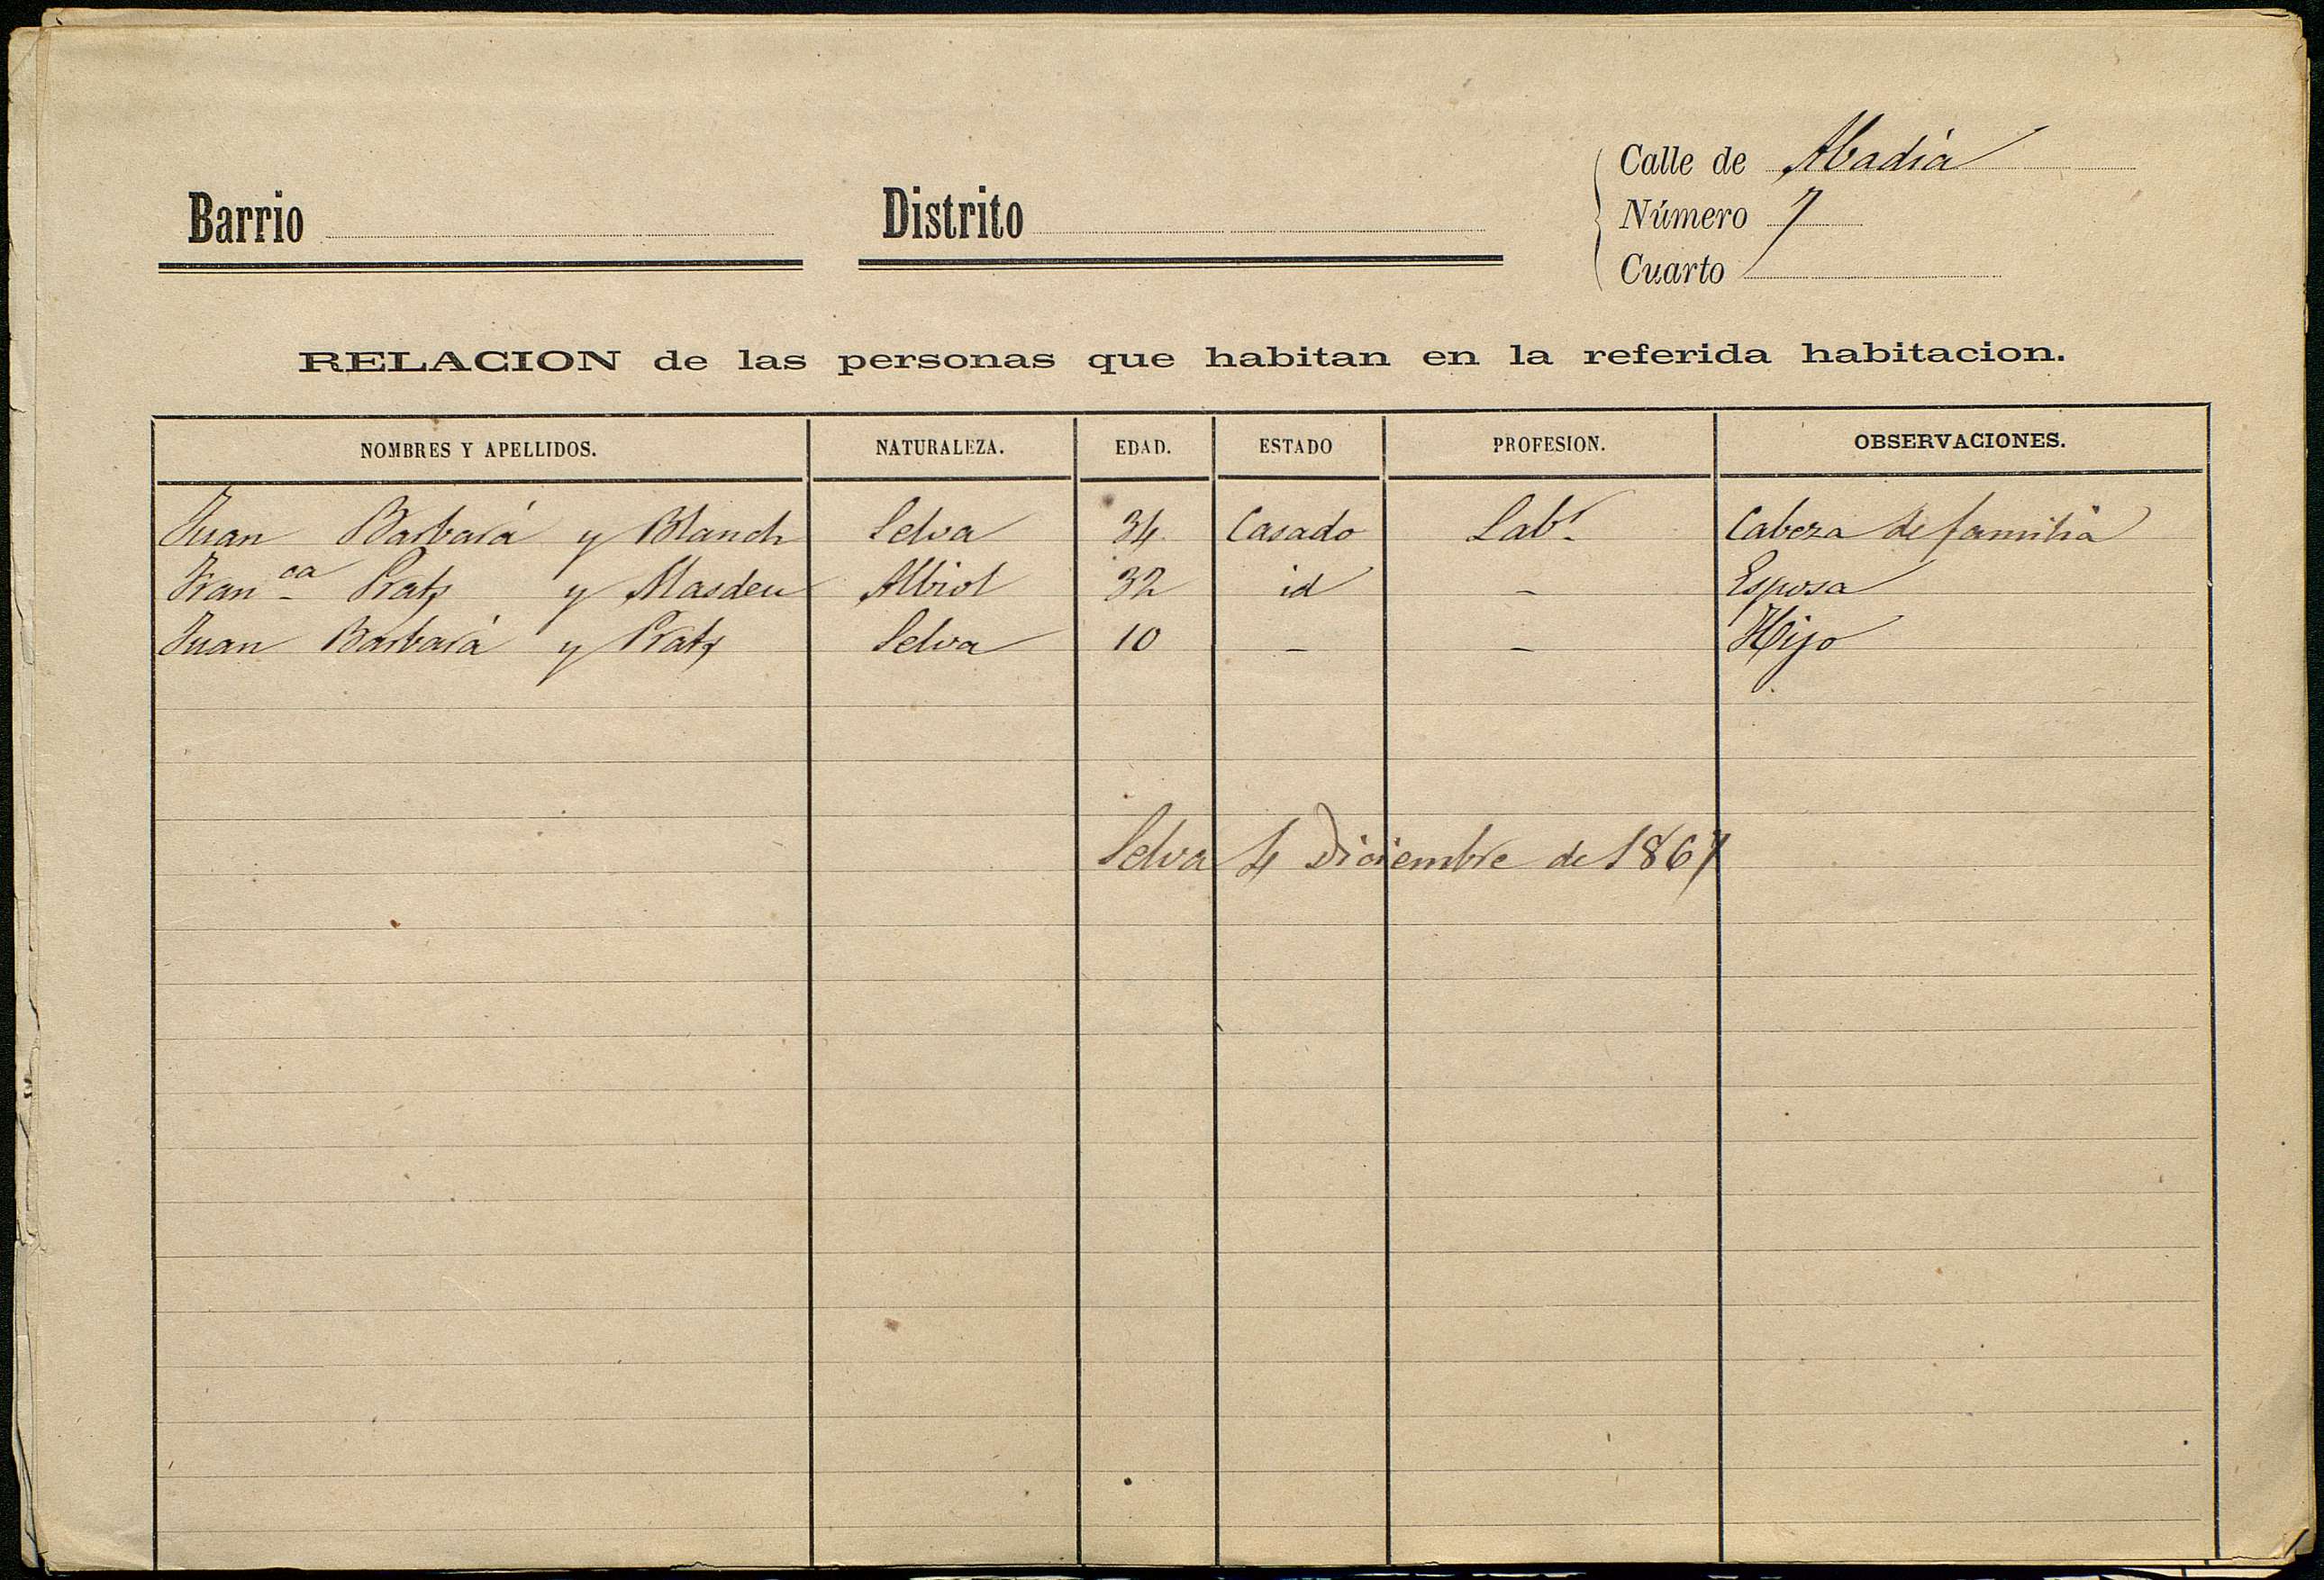 Calle de Abadía
Barrio Distrito Número 7
Cuarto
RELACION de las personas que habitan en la referida habitacion.
NOMBRES Y APELLIDOS. NATURALEZA. EDAD. ESTADO PROFESION. OBSERVACIONES.
Juan Barbará y Blanch Selva 34 Casado Labr Cabeza de familia
Franca Prats y Masdeu Albiol 32 id - Esposa
Juan Barbará y Prats Selva 10 - - Hijo
Selva 4 Diciembre de 1867